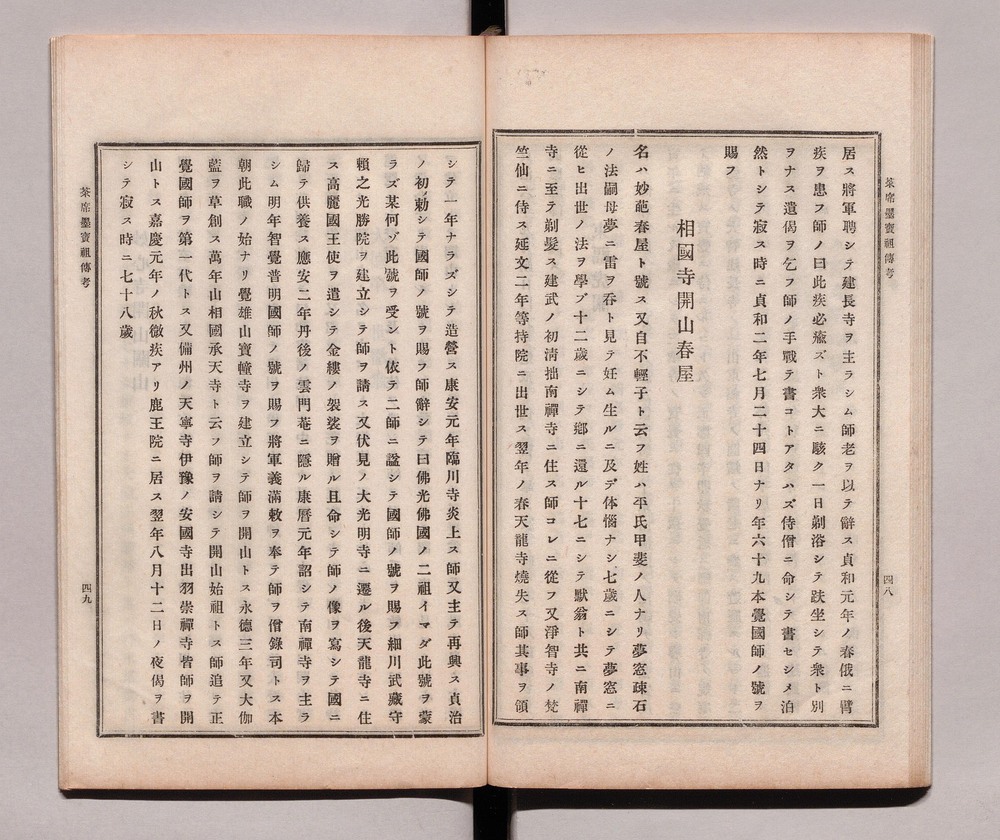 茶席墨寶祖傳考
四八
居ス將軍聘シテ建長寺ヲ主ラシム師老ヲ以テ辭ス貞和元年ノ春俄ニ臂
疾ヲ患フ師ノ曰此疾必癒ズト衆大ニ駭ク一日剃浴シテ趺坐シテ衆ト別
ヲナス遺偈ヲ乞フ師ノ手戰テ書コトアタハズ侍僧ニ命シテ書セシメ泊
然トシテ寂ス時ニ貞和二年七月二十四日ナリ年六十九本覺國師ノ號ヲ
賜フ
相國寺開山春屋
名ハ妙葩春屋ト號ス又自不輕子ト云フ姓ハ平氏甲斐ノ人ナリ夢窓疎石
ノ法嗣母夢ニ雷ヲ呑ト見テ妊ム生ルニ及デ体惱ナシ七歳ニシテ夢窓ニ
從ヒ出世ノ法ヲ學ブ十二歳ニシテ鄕ニ還ル十七ニシテ默翁ト共ニ南禪
寺ニ至テ剃髮ス建武ノ初淸拙南禪寺ニ住ス師コレニ從フ又淨智寺ノ梵
竺仙ニ侍ス延文二年等持院ニ出世ス翌年ノ春天龍寺燒失ス師其事ヲ領
シテ一年ナラズシテ造營ス康安元年臨川寺炎上ス師又主テ再興ス貞治
ノ初勅シテ國師ノ號ヲ賜フ師辭シテ曰佛光佛國ノ二祖イマダ此號ヲ蒙
ラズ某何ゾ此號ヲ受ント依テ二師ニ諡シテ國師ノ號ヲ賜フ細川武藏守
賴之光勝院ヲ建立シテ師ヲ請ス又伏見ノ大光明寺ニ遷ル後天龍寺ニ住
ス高麗國王使ヲ遣シテ金縷ノ袈裟ヲ贈ル且命シテ師ノ像ヲ寫シテ國ニ
歸テ供養ス應安二年丹後ノ雲門菴ニ隱ル康曆元年詔シテ南禪寺ヲ主ラ
シム明年智覺普明國師ノ號ヲ賜フ將軍義滿敕ヲ奉テ師ヲ僧錄司トス本
朝此職ノ始ナリ覺雄山寶幢寺ヲ建立シテ師ヲ開山トス永德三年又大伽
藍ヲ草創ス萬年山相國承天寺ト云フ師ヲ請シテ開山始祖トス師追テ正
覺國師ヲ第一代トス又備州ノ天寧寺伊豫ノ安國寺出羽崇禪寺皆師ヲ開
山トス嘉慶元年ノ秋微疾アリ鹿王院ニ居ス翌年八月十二日ノ夜偈ヲ書
シテ寂ス時ニ七十八歳
茶席墨寶祖傳考
四九